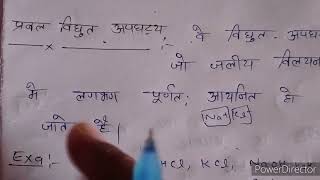 प्रबल विद्युत अपघट्य :- वे विद्युत अपघ
जो जलीय विलयन
में लगभग पूर्णतः आयनित हो
जाते है।
Exa :- HCl, KCl, NaOH
PowerDirector